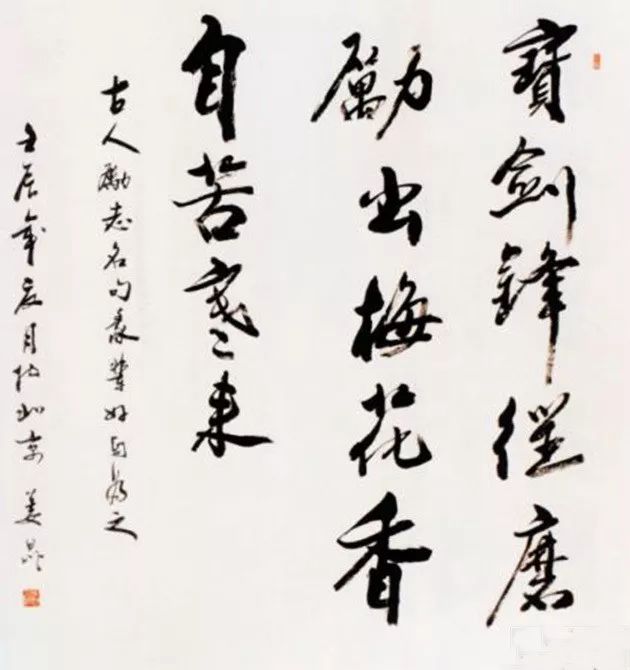 寶劍鋒從磨
勵出梅花香
自苦寒来
古人勵志名句我輩好自為之
壬辰年月於北京 姜昆